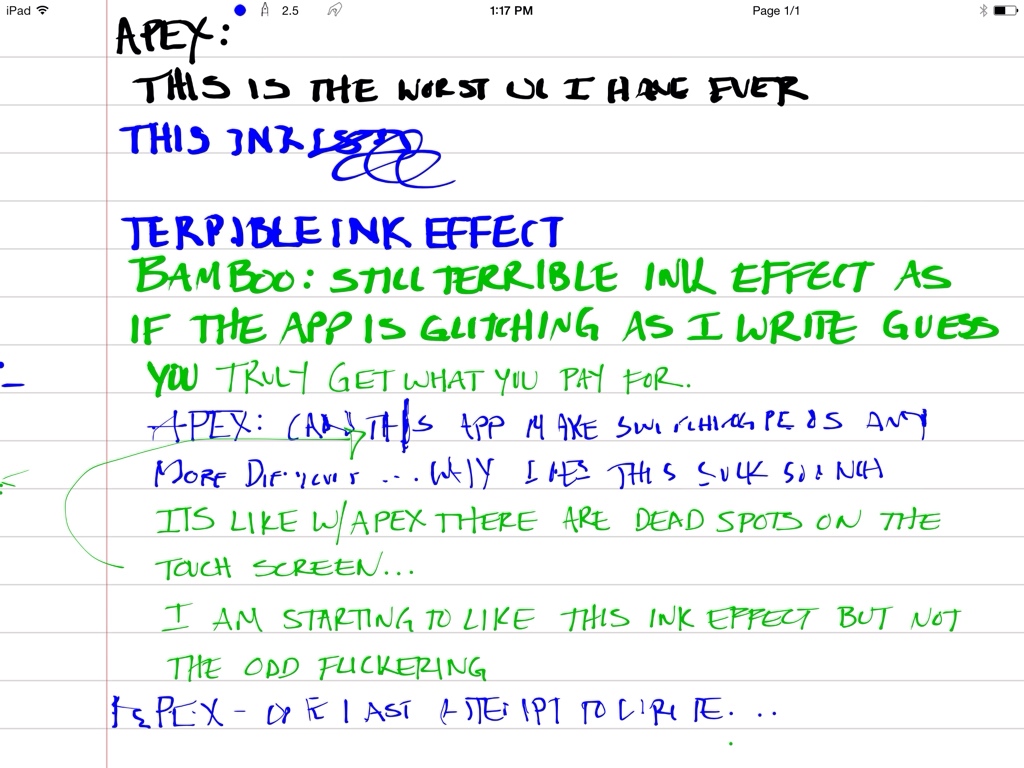 iPad 2.5 1:17 PM Page 1/1
APEX:
THIS IS THE WORST UI I HAVE EVER
THIS INK
TERRIBLE INK EFFECT
BAMBOO: STILL TERRIBLE INK EFFECT AS
IF THE APP IS GLITCHING AS I WRITE GUESS
YOU TRULY GET WHAT YOU PAY FOR.
APEX: CAN THIS APP MAKE SWITCHING PENS ANY
MORE DIFFICULT ... WHY DOES THIS SUCK SO MUCH
ITS LIKE W/APEX THERE ARE DEAD SPOTS ON THE
TOUCH SCREEN...
I AM STARTING TO LIKE THIS INK EFFECT BUT NOT
THE ODD FLICKERING
APEX - ONE LAST ATTEMPT TO WRITE...